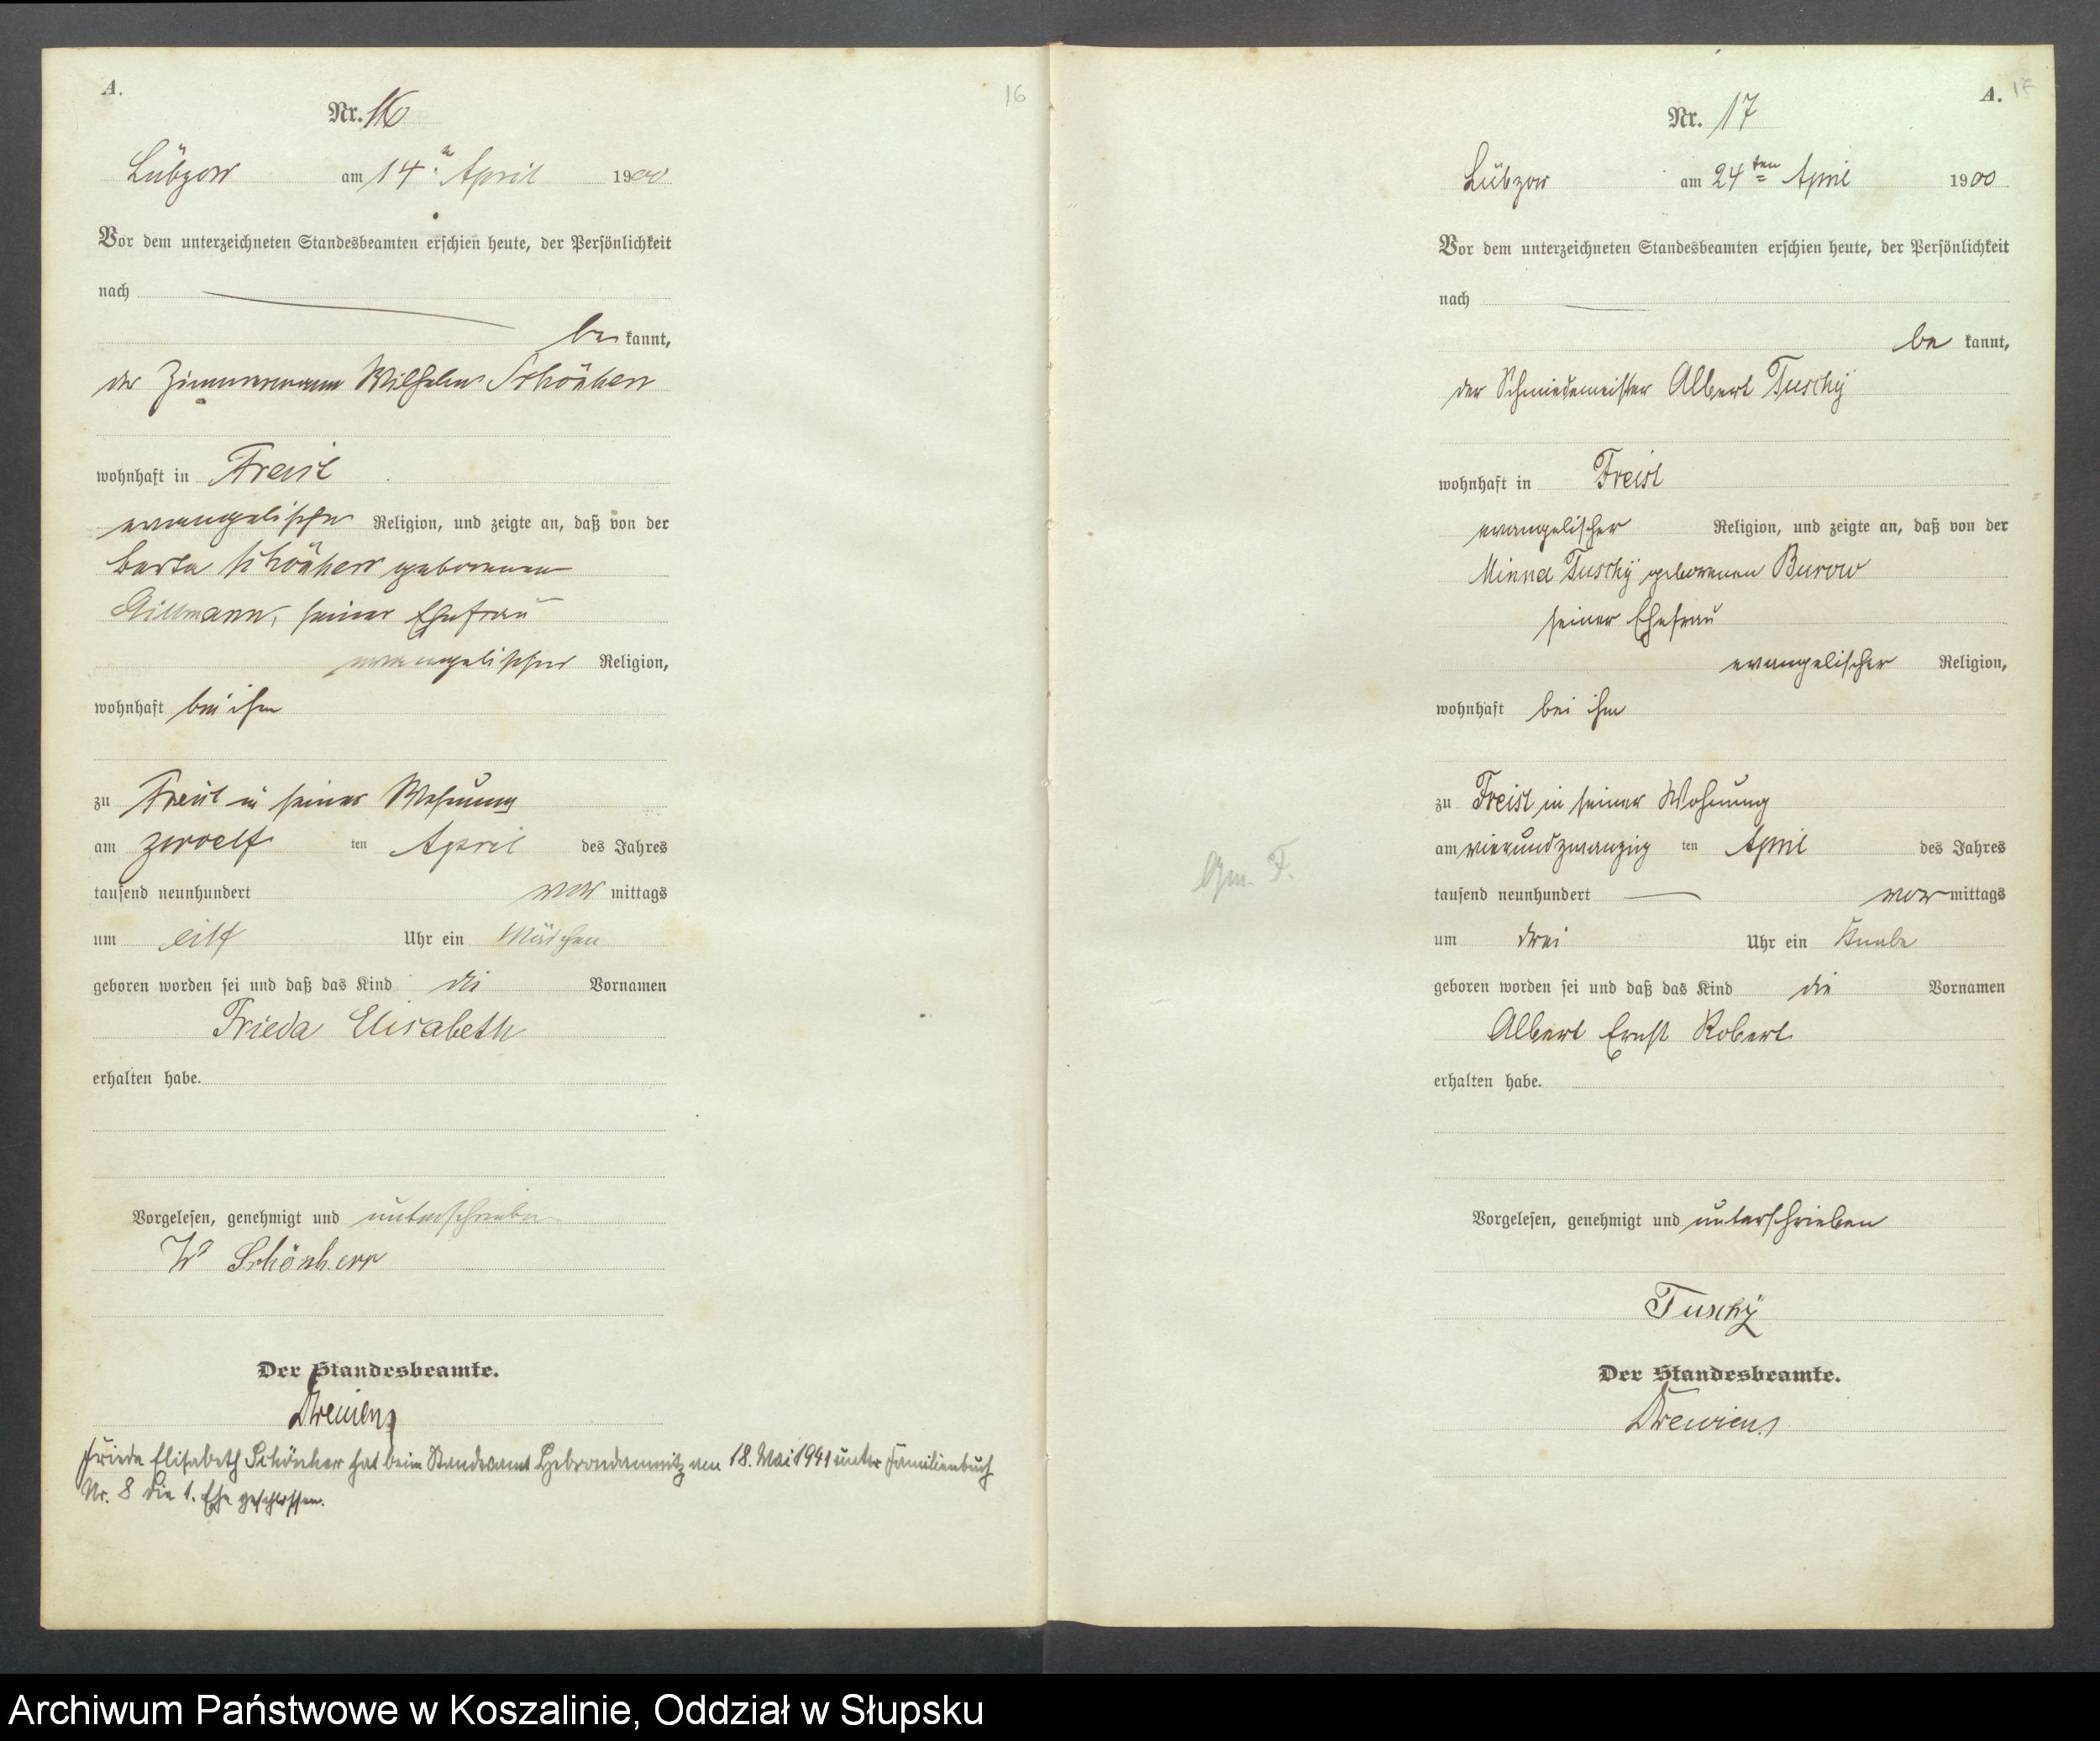 A.
16
Nr. 16
Lübzow am 14n April 1900
Vor dem unterzeichneten Standesbeamten erschien heute, der Persönlichkeit
nach
be kannt,
der Zimmermann Wilhelm Schönherr
wohnhaft in Freist
evangelischer Religion, und zeigte an, daß von der
Schönherr geborenen
seiner Ehefrau
evangelischer Religion,
wohnhaft bei ihm
zu Freist in seiner Wohnung
am zwoelf ten April des Jahres
tausend neunhundert vor mittags
um eilf Uhr ein Mädchen
geboren worden sei und daß das Kind die Vornamen
Frieda Elisabeth
erhalten habe.
Vorgelesen, genehmigt und unterschrieben
W Schönherr
Der Standesbeamte.
Drewienz
Frieda Elisabeth Schönherr hat beim Standesamt Hebrondamnitz am 18. Mai 1941 unter Familienbuch
Nr. 8 die 1. Ehe geschlossen.
A.
17
Nr. 17
Lübzow am 24ten April 1900
Vor dem unterzeichneten Standesbeamten erschien heute, der Persönlichkeit
nach
be kannt,
der Schmiedemeister Albert Tuschÿ
wohnhaft in Freist
evangelischer Religion, und zeigte an, daß von der
Minna Tuschÿ geborenen Burow
seiner Ehefrau
evangelischer Religion,
wohnhaft bei ihm
zu Freist in seiner Wohnung
am vierundzwanzig ten April des Jahres
tausend neunhundert vor mittags
um drei Uhr ein Knabe
geboren worden sei und daß das Kind die Vornamen
Albert Ernst Robert
erhalten habe.
Vorgelesen, genehmigt und unterschrieben
Tuschÿ
Der Standesbeamte.
Drewienz
Archiwum Państwowe w Koszalinie, Oddział w Słupsku